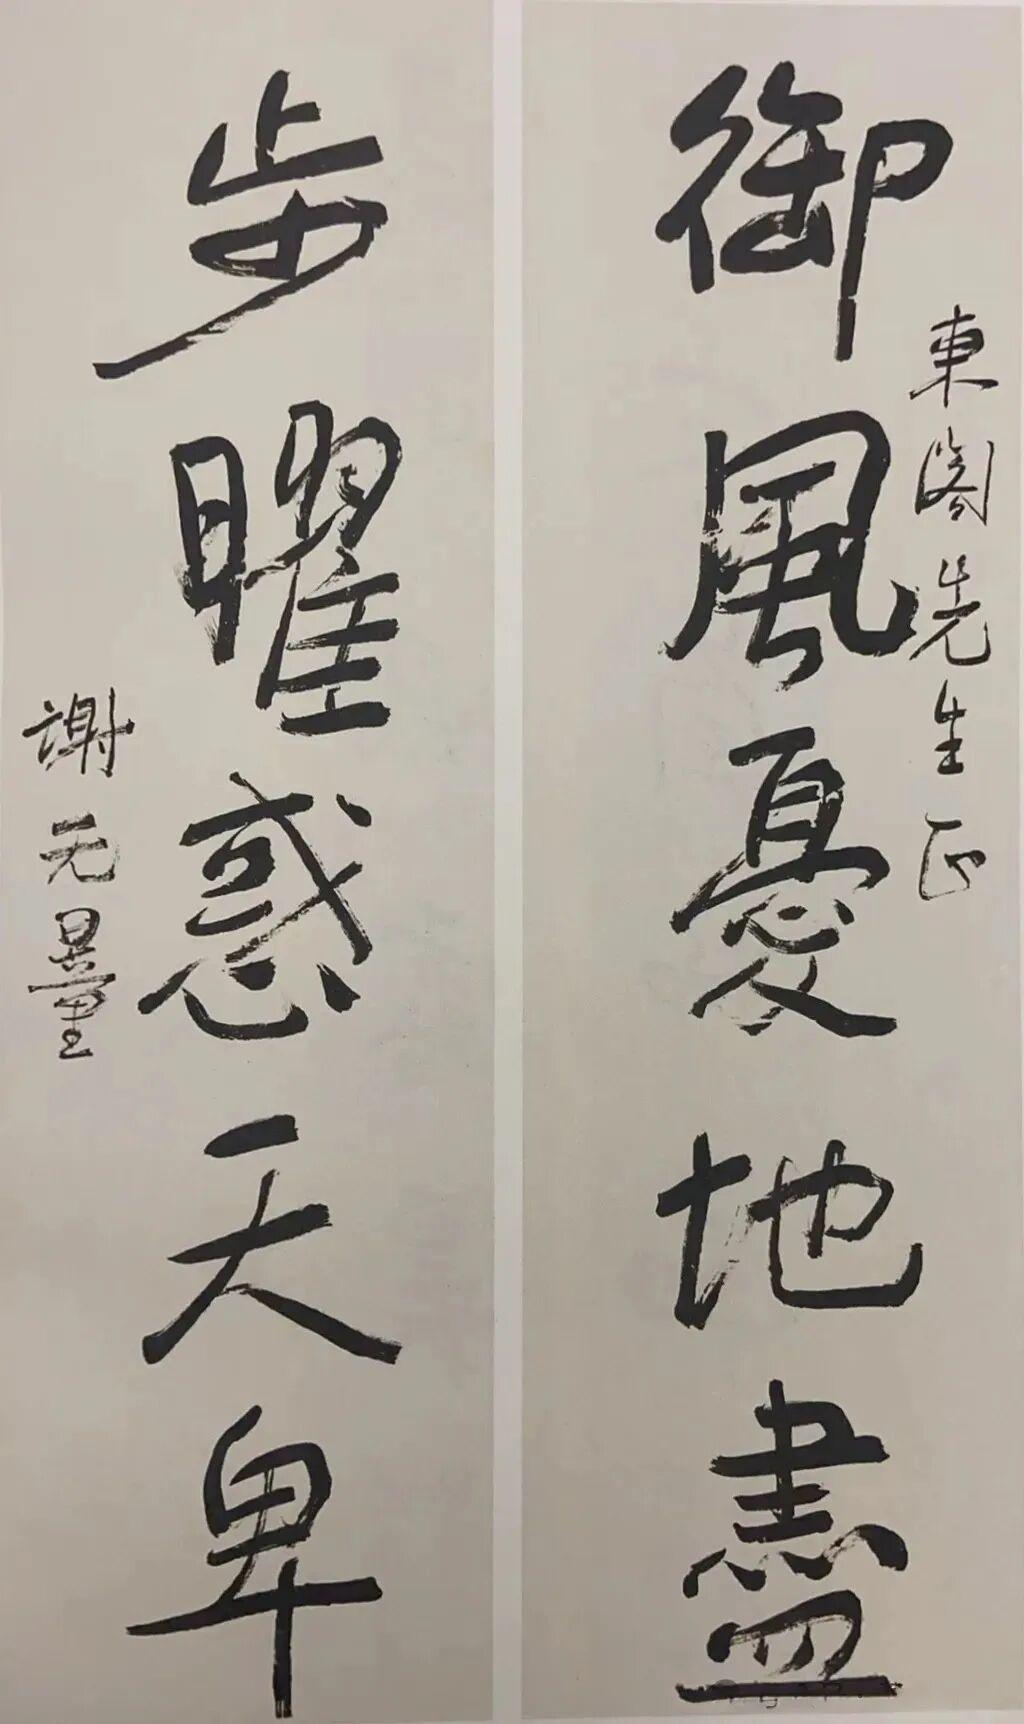 御風憂地盡
東閣先生正
步曜惑天卑
謝无量